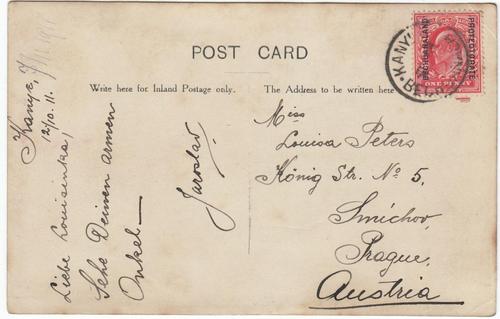 POST CARD
Write here for Inland Postage only.
The Address to be written here
BECHUANALAND
PROTECTORATE
ONE PENNY
Kanye,
12/10.11.
Liebe Louisenka,
Sehe Deinen armen
Onkel
Jaroslav
Miss
Louisa Peters
König Str. No 5.
Smíchov,
Prague,
Austria